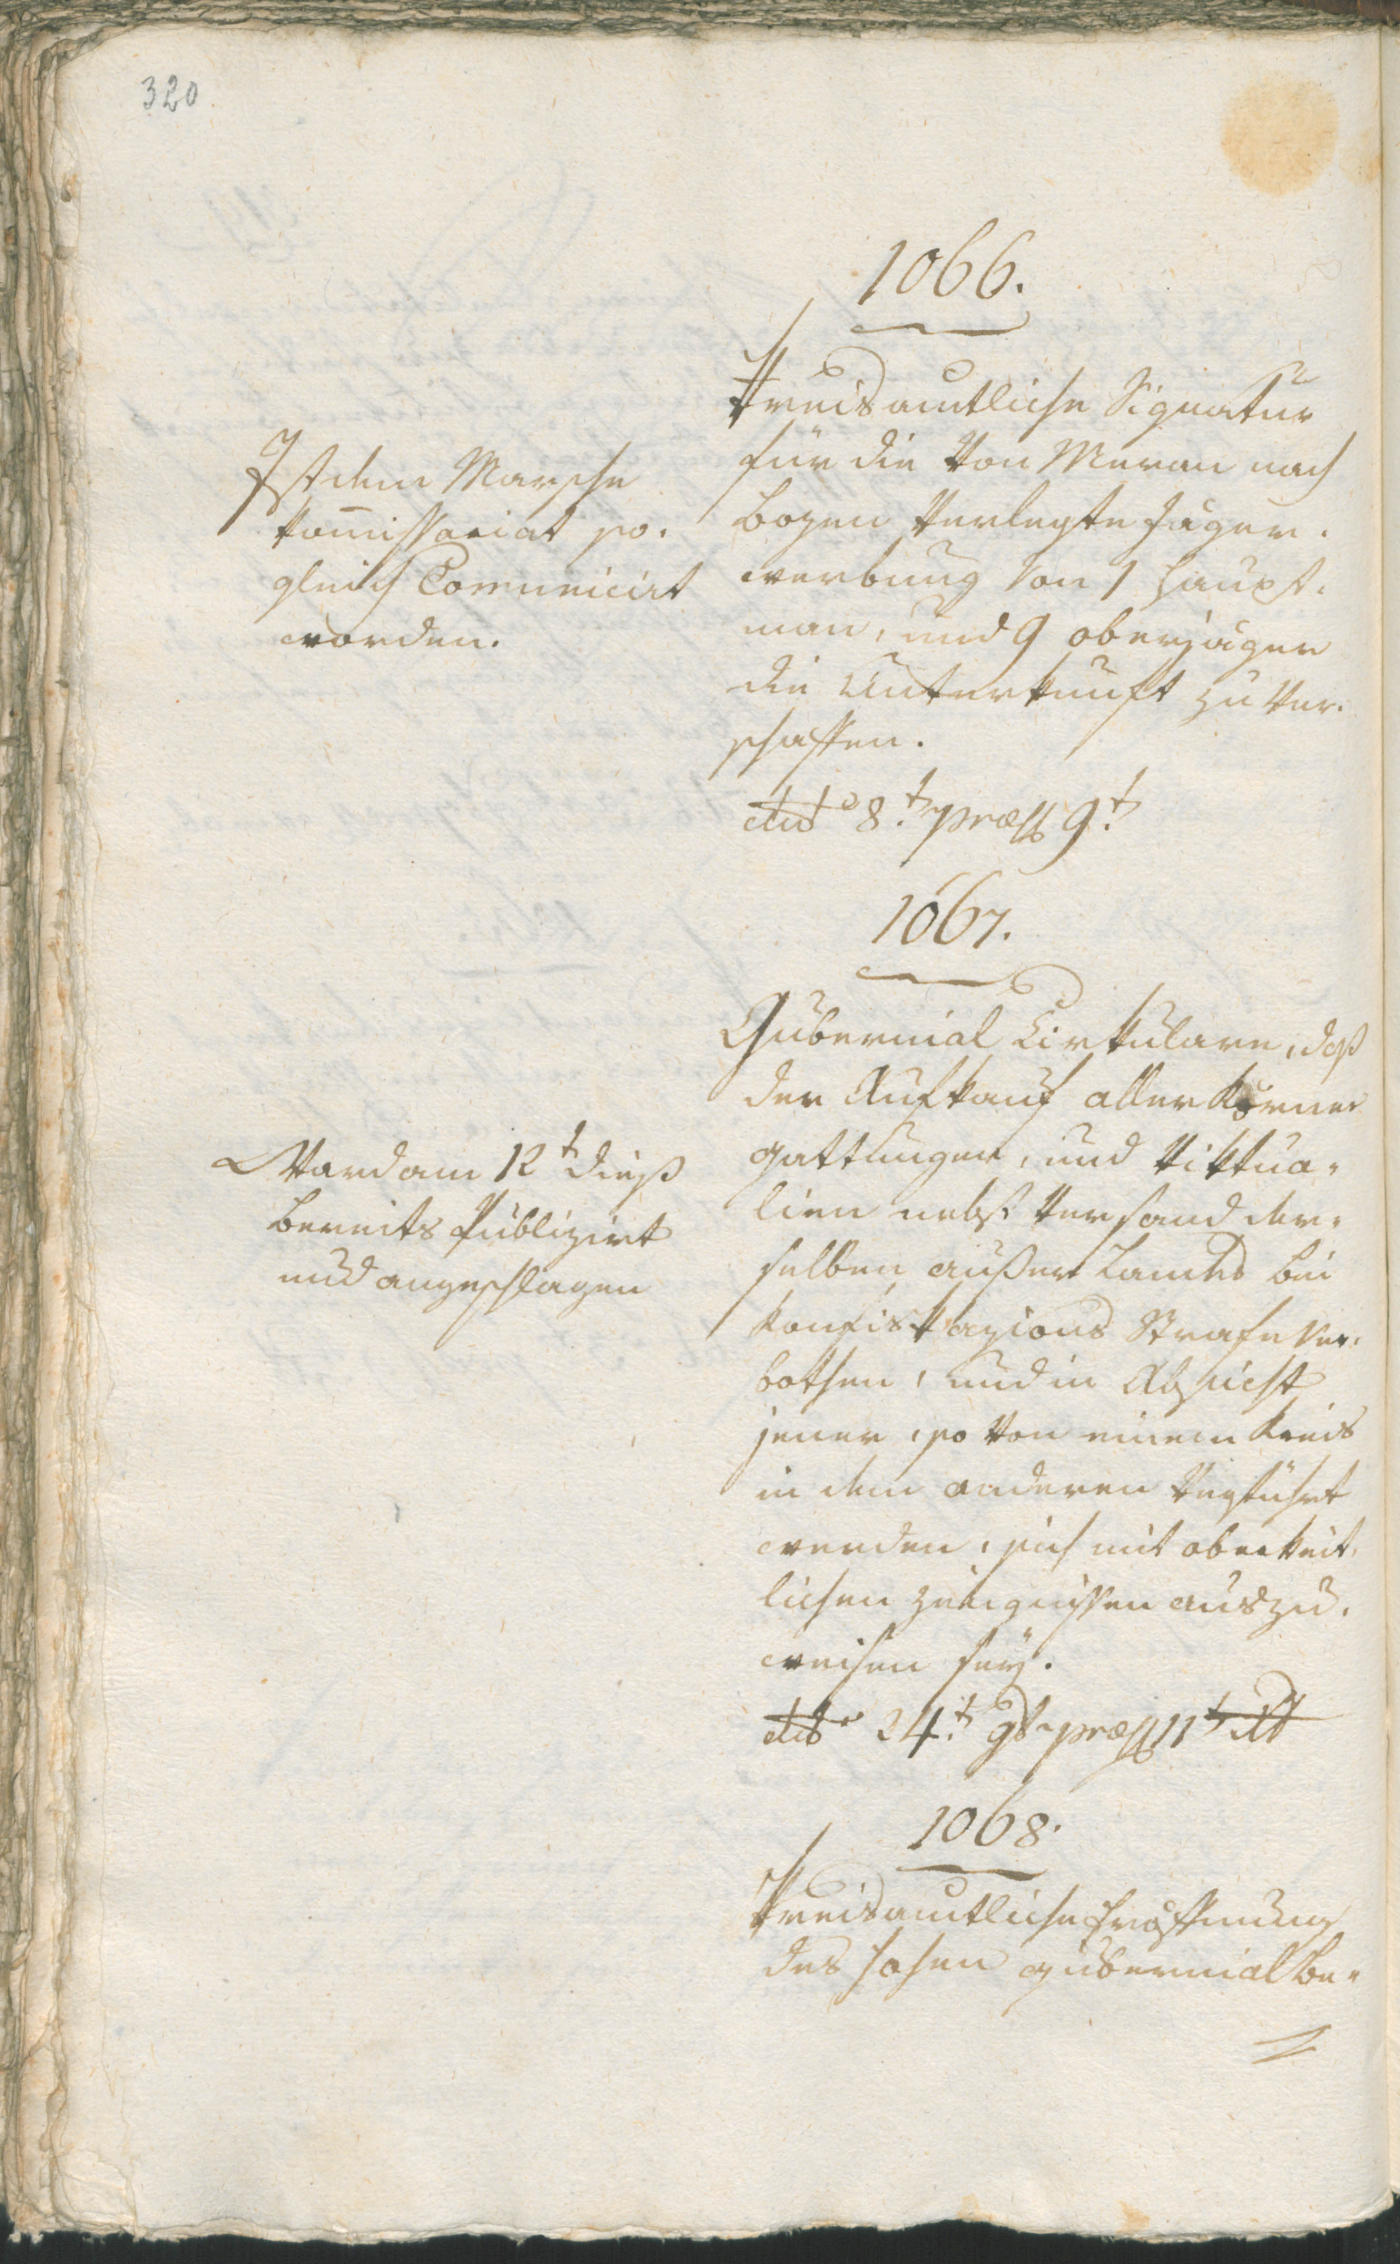 320
1066.
Kreisamtliche Signatur
für die von Meran nach
Bozen verlegte Jäger-
werbung von 1 Haupt-
man, und 9 oberjäger
die Unterkunft zu ver-
schaffen.
ddo 8t. præss 9t.
Ist dem Marsche
Kom̄issariat so-
gleich Comunicirt
worden.
1067.
Gubernial Cirkulare, daß
der Aufkauf aller Körner
gattungen, und Viktua-
lien nebst Versand der-
selben außer Landes bei
Konfiskazions Strafe ver-
bothen, und in Absicht
jener, so von einem Kreis
in dem anderen verführt
werden, sich mit oberkeit-
lichen Zeugnissen auszu-
weisen seÿ.
ddo 24t. 9b præss 11t dt
Ward am 12t dieß
bereits Publizirt
und angeschlagen
1068.
Kreisamtliche Eröffnung
des hohen gubernial Be-